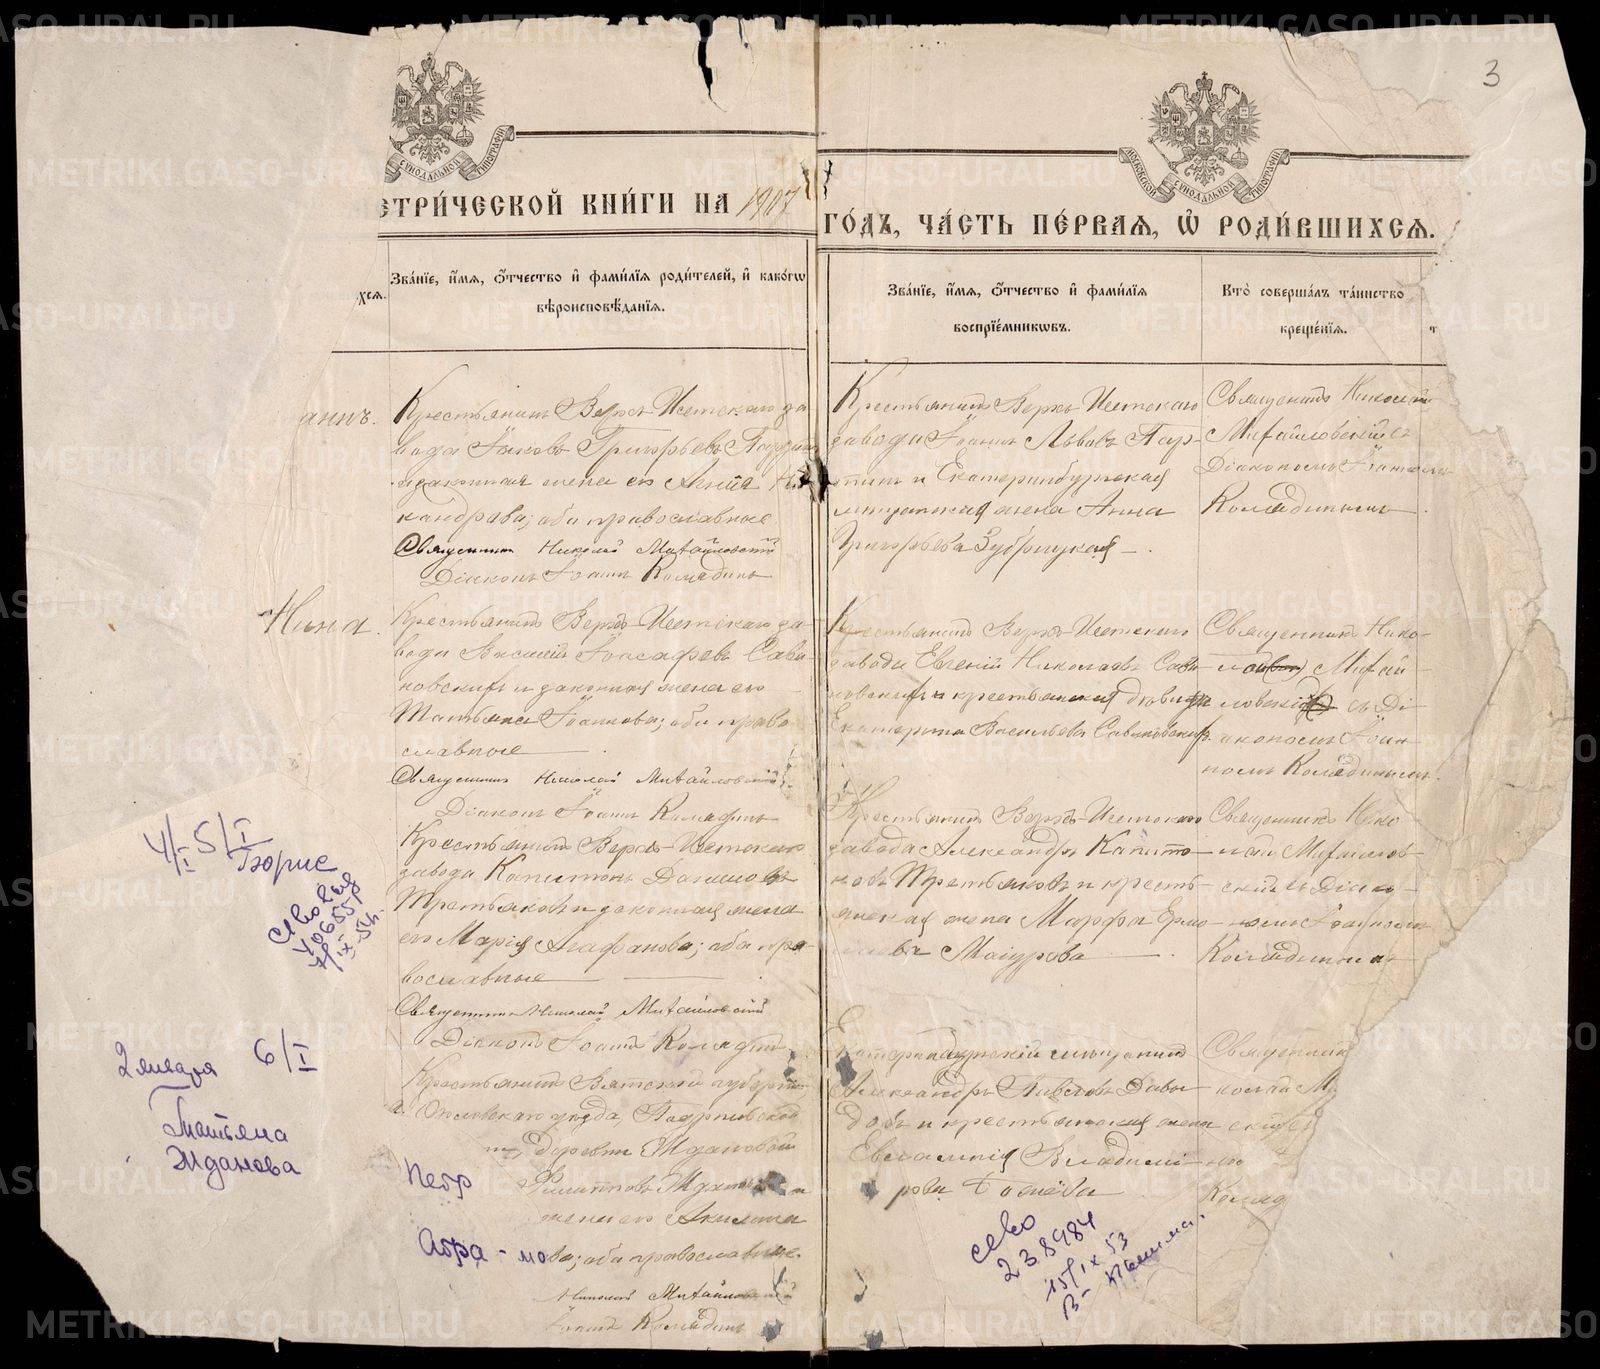 3
МОСКОВСКОЙ СУНОДАЛЬНОЙ ТИПОГРАФІИ
ЕТРИ́ЧЕСКОЙ КНИ́ГИ НА 1907
ГО́ДЪ, ЧА́СТЬ ПЕ́РВАѦ, Ѡ҆ РОДИ́ВШИХСѦ.
хсѧ.
Зва́нїе, и҆́мѧ, ѻ҆́тчество и҆ фами́лїѧ роди́телей, и҆ како́гѡ
вѣроисповѣ́данїѧ.
Зва́нїе, и҆́мѧ, ѻ҆́тчество и҆ фами́лїѧ
воспрїе́мникѡвъ.
Кто̀ соверша́лъ та́инство
креще́нїѧ.
аннъ.
Крестьянинъ Верхъ-Исетскаго за
вода Іаковъ Григорьевъ
законная жена его
кандрова; оба православные
Священникъ Николай Михайловскій
Діаконъ Іоаннъ Колядинъ
Крестьянинъ Верхъ-Исетскаго
завода Іоаннъ Львовъ Пар-
и Екатеринбургская
мещанская жена Анна
Григорьева Зубрицкая
Священникъ Николай
Михайловскій съ
Діакономъ Іоанномъ
Колядинымъ
Нина.
Крестьянинъ Верхъ-Исетскаго за-
вода Василій Іоасафовъ Сави-
новскихъ и законная жена его
Татьяна Іоаннова; оба право
славные
Священникъ Николай Михайловскій
Діаконъ Іоаннъ Колядинъ
Крестьянинъ Верхъ-Исетскаго
завода Евгеній Николаевъ Сави
новскихъ и крестьянская дѣвица
Екатерина Васильева Савиновскихъ.
Священникъ Нико-
Михай
ловскій съ Ді
акономъ Іоан
номъ Колядинымъ.
Крестьянинъ Верхъ-Исетскаго
завода Капитонъ Даниловъ
Третьяковъ и законная жена
его Марія Агафонова; оба пра
вославные
Священникъ Николай Михайловскій
Діаконъ Іоаннъ Колядинъ
Крестьянинъ Верхъ-Исетскаго
завода Александръ Капито-
новъ Третьяковъ и кресть-
янская жена Марфа Ермо
Маіурова
Священникъ Нико
лай Михайлов-
скій съ Діако-
номъ Іоанномъ
Колядинымъ
4/I 5/I
Борис
св-во выд
406557
7/IX-54.
2 января 6/I
Татьяна
Жданова
Крестьянинъ Вятской губерніи
Орловскаго уѣзда
деревни Ждановской
Петр Филипповъ Ждановъ и
жена его Акилина
Абра-мова; оба православные.
Николай Михайловскій
Іоаннъ Колядинъ
Екатеринбургскій мещанинъ
Александръ Павловъ Давы
довъ и крестьянская жена
Евлампія Владимі-
рова
Священник
колай М
скій съ
но
Коляд
св-во
238484
15/IX 53